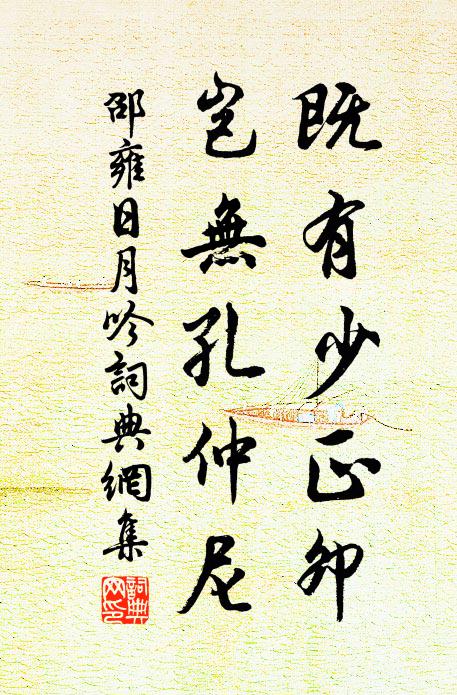 既有少正卯
豈無孔仲尼
邵雍日月吟詞典網集
詞典网印